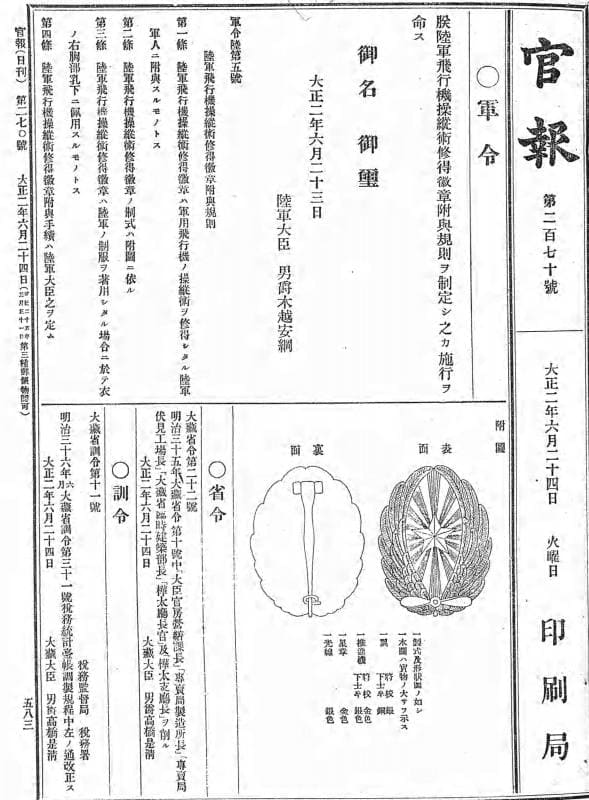 官報
第二百七十號
大正二年六月二十四日
火曜日
印刷局
〇軍令
朕陸軍飛行機操縱術修得徽章附與規則ヲ制定シ之カ施行ヲ
命ス
御名御璽
大正二年六月二十三日
陸軍大臣 男爵木越安綱
軍令陸第五號
陸軍飛行機操縱術修得徽章附與規則
第一條 陸軍飛行機操縱術修得徽章ハ軍用飛行機ノ操縱術ヲ修得シタル陸軍
軍人ニ附與スルモノトス
第二條 陸軍飛行機操縱術修得徽章ノ制式ハ附圖ニ依ル
第三條 陸軍飛行機操縱術修得徽章ハ陸軍ノ制服ヲ著用シタル場合ニ於テ衣
ノ右胸部乳下ニ佩用スルモノトス
第四條 陸軍飛行機操縱術修得徽章附與手續ハ陸軍大臣之ヲ定ム
附圖
表面
裏面
一製式及形狀圖ノ如シ
一本圖ハ實物ノ大サヲ示ス
一翼 將校 銀
下士卒 銅
一推進機 將校 金色
下士卒 銀色
一星章 金色
一光線 銀色
〇省令
大藏省令第二十二號
明治三十五年大藏省令第十號中「大臣官房營繕課長」「專賣局製造所長」「專賣局
伏見工場長」「大藏省臨時建築部長」「樺太廳長官及「樺太支廳長」ヲ削ル
大正二年六月二十四日
大藏大臣 男爵高橋是淸
〇訓令
大藏省訓令第十一號
稅務監督局 稅務署
明治三十六年六月大藏省訓令第三十一號稅務統計臺帳調製規程中左ノ通改正ス
大正二年六月二十四日
大藏大臣 男爵高橋是淸
官報(日刊) 第二七〇號 大正二年六月二十四日
第三種郵便物認可
五八三